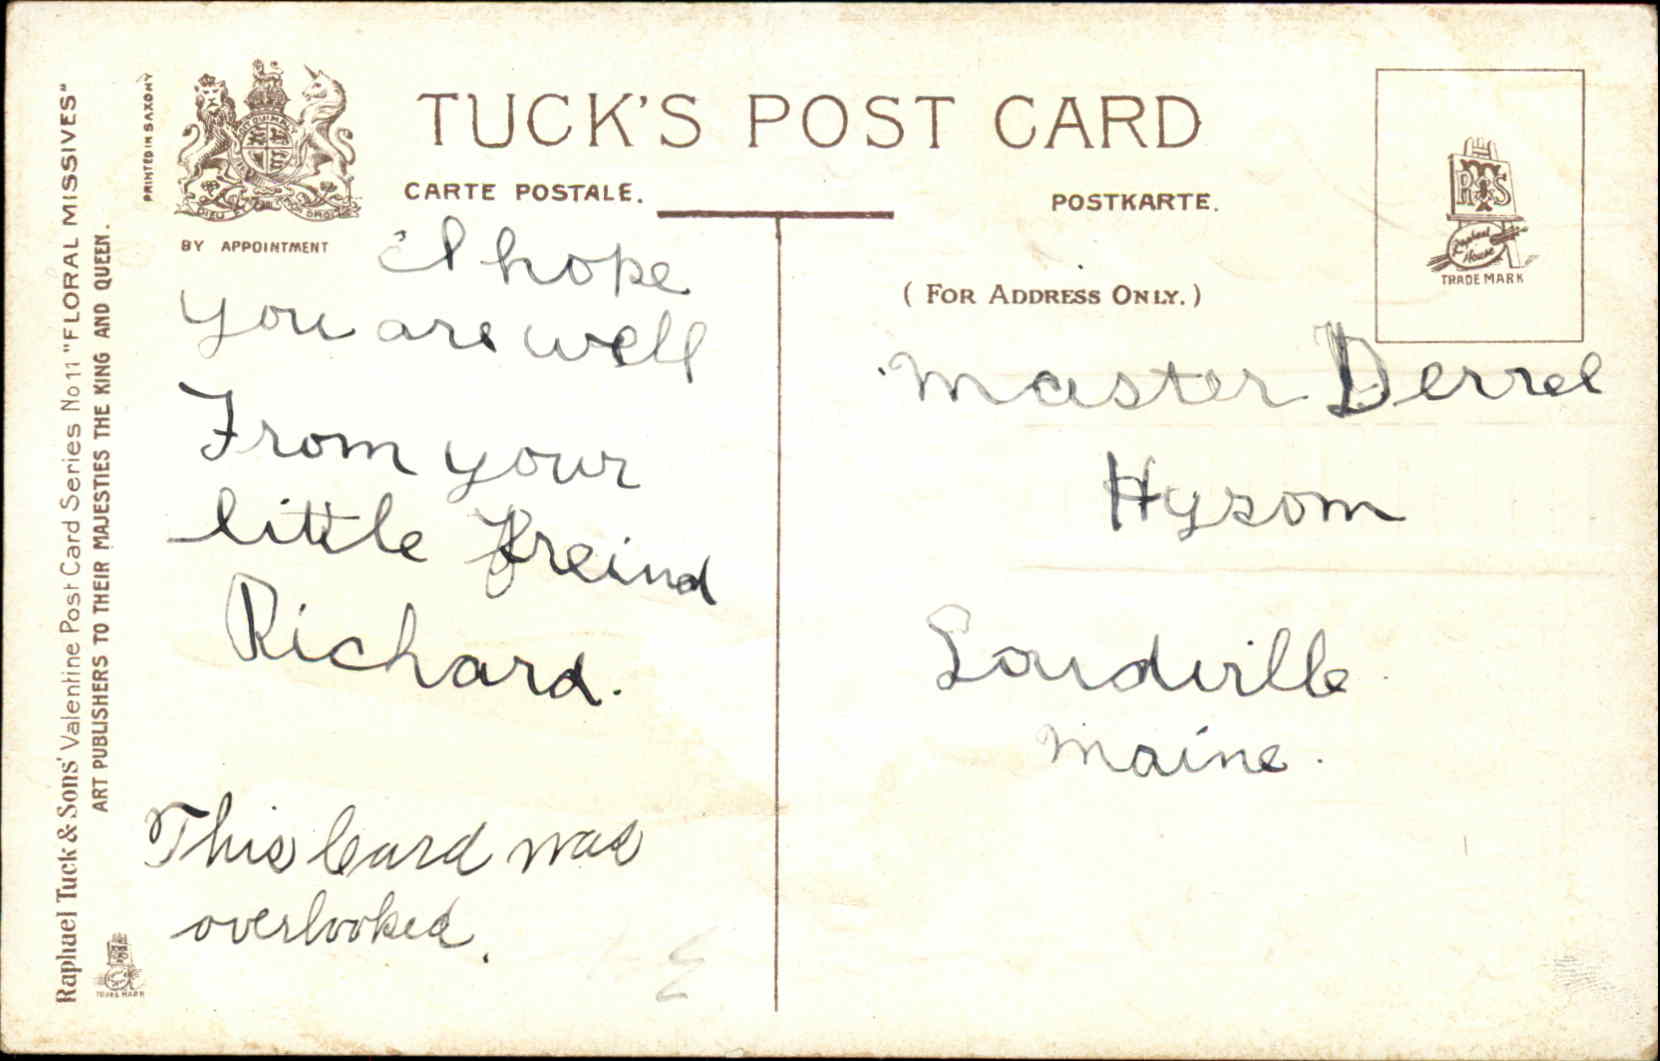 TUCK'S POST CARD
CARTE POSTALE.
POSTKARTE.
BY APPOINTMENT
PRINTED IN SAXONY
(FOR ADDRESS ONLY.)
TRADE MARK
Raphael Tuck & Sons' Valentine Post Card Series No 11 "FLORAL MISSIVES"
ART PUBLISHERS TO THEIR MAJESTIES THE KING AND QUEEN.
TRADE MARK
I hope
you are well
From your
little Freind
Richard.
This Card was
overlooked.
Master Derrel
Hysom
Loudville
Maine.